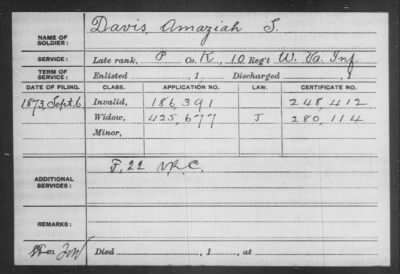 NAME OF SOLDIER: Davis, Amaziah S.
SERVICE: Late rank, P Co. K, 10 Reg't W. Va. Inf.
TERM OF SERVICE: Enlisted , 1 Discharged , 1
DATE OF FILING. CLASS. APPLICATION NO. LAW. CERTIFICATE NO.
1873, Sept. 6 Invalid, 186,391 248,412
Widow, 425,677 J 280,114
Minor,
ADDITIONAL SERVICES: F, 22 V.R.C.
REMARKS:
Died , 1 , at